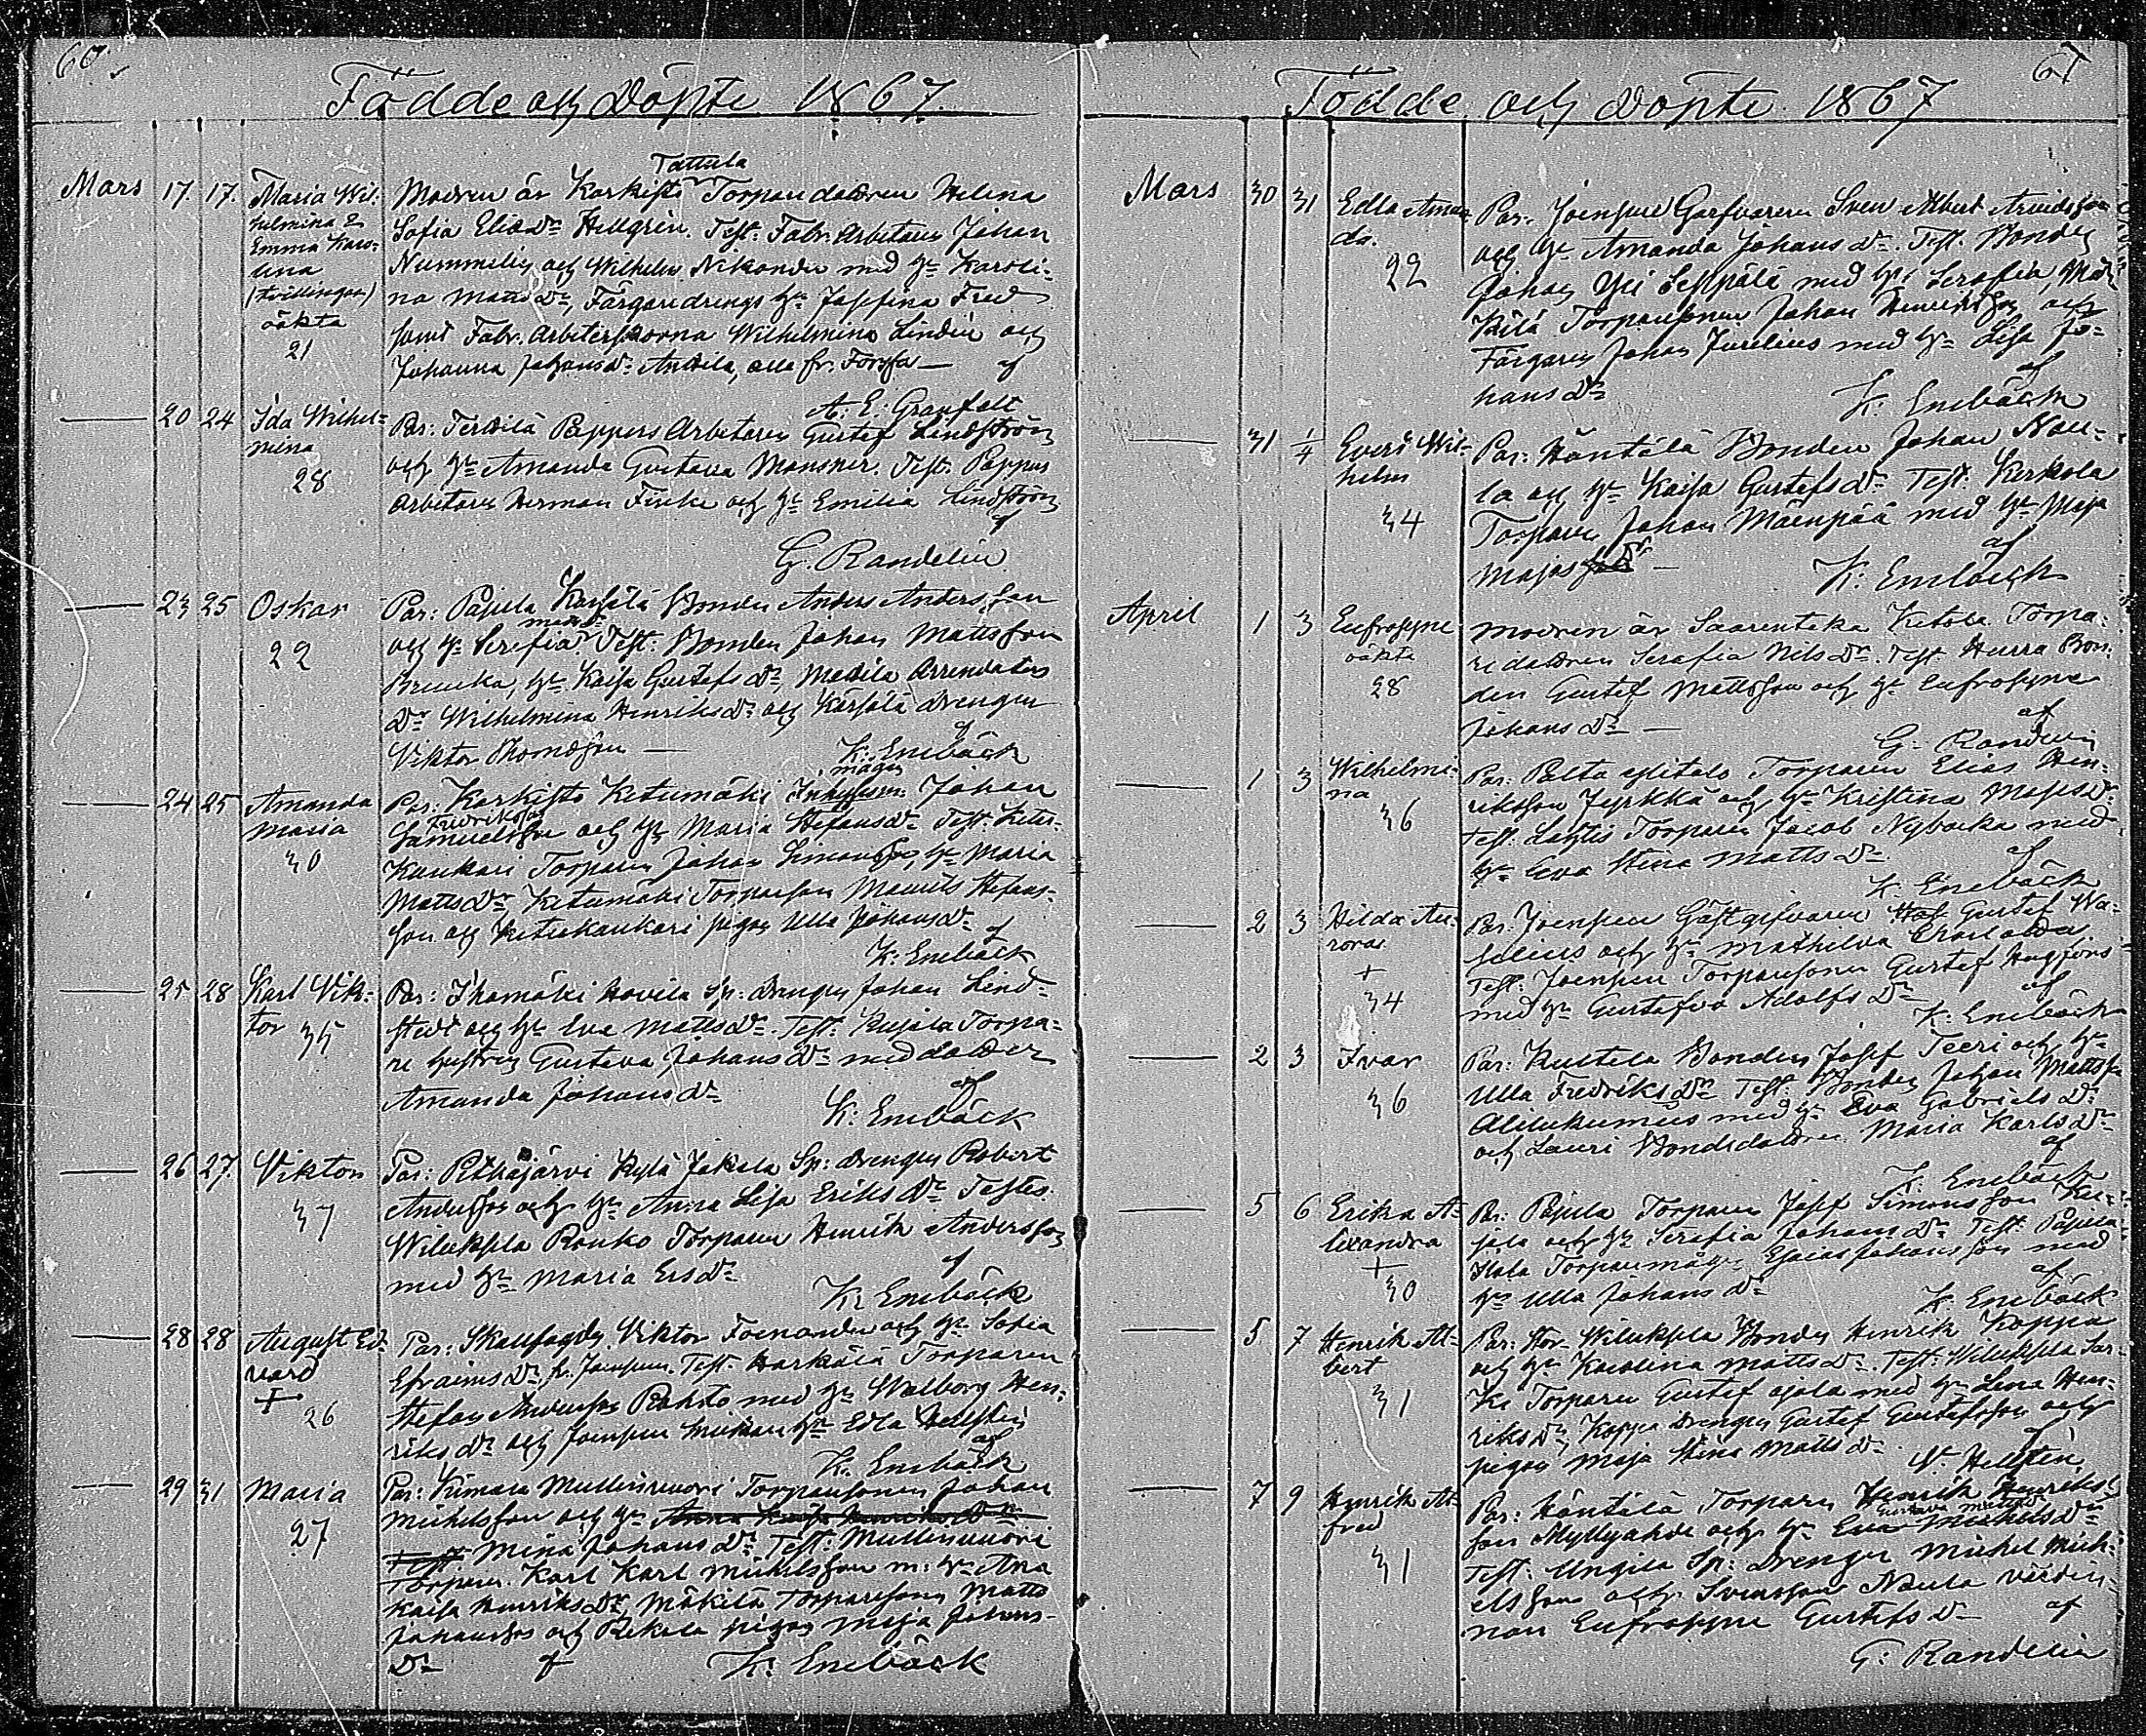 60.
Födde och Döpte 1867.
Mars 17. 17. Maria Wil-
helmina &
Emma Karo-
lina
(tvillingar)
oäkta
21
Tattula
Modren är Karkisto Torparedottren Helena
Sofia Eliæ Dr Hellgrén. Test: Fabr. Arbetaren Johan
Nummelin och Wilhelm Nikander med hu Karoli-
na Matts Dr, Färgaredrengs hu Josefina Fred
samt Fabr. Arbeterskorna Wilhelmina Lindén och
Johanna Johans Dr Anttila, alla fr. Forssa — af
A. E. Granfelt
— 20 24 Ida Wilhel-
mina
28
Par: Terttilä Pappers Arbetaren Gustaf Lindström
och hu Amanda Gustava Monsner. Test: Pappers
Arbetaren Herman Finke och hu Emilia Lindström
af
G. Randelin
— 23 25 Oskar
22
Par: Pajula Karsälä Bonden Anders Andersson
och hu Serafia Matts Dr Test: Bonden Johan Mattsson
Prunka, hu Kaisa Gustafs Dr, Mattila Arrendators
Dr Wilhelmina Henriks Dr och Kärsälä Drengen
Viktor Thomasson — af
K. Enebäck
— 24 25 Amanda
Maria
30
Par: Karkisto Ketumäki mågen Johan
Fredriksson
Samuelsson och hu Maria Stefans Dr Test:
Kankari Torparen Johan Simonsson, hu Maria
Matts Dr Ketumäki Torpareson Maurits Stefans-
son och Ketukankari pigan Ulla Johans Dr af
K. Enebäck
— 25 28 Karl Vik-
tor
35
Par: Ihamäki Hovila Sp: Drengen Johan Lind-
stedt och hu Eva Matts Dr. Test: Kujala Torpa-
re hustrun Gustava Johans Dr med dotter
Amanda Johans Dr af
K: Enebäck
— 26 27. Viktor
37
Par: Pitkäjärvi Kylä Jakala Sp: Drengen Robert
Andersson och hu Anna Lisa Eriks Dr Testes.
Wiluksela Rauko Torparen Henrik Andersson
med hu Maria Ers Dr af
K: Enebäck
— 28 28 August Ed-
vard
+
26
Par: Skogsfogden Viktor Fornander och hu Sofia
Efraims Dr fr. Joensuu. Test: Harkälä Torparen
Stefan Andersson Rahko med hu Walborg Hen-
riks Dr och Joensuu hu Edla Hellstén
af
K. Enebäck
— 29 31 Maria
27
Par: Kimala Mullinvuori Torparesonen Johan
Michelsson och hu Anna Kaisa Henriks Dr
Test Mina Johans Dr Test: Mullinvuori
Torparen Karl Karl Michelsson m: hu Ana
Kaisa Henriks Dr, Mäkilä Torpareson Matts
Johansson och Rekola pigan Maja Johans-
Dr af K: Enebäck
61
Födde och Döpte 1867
Mars 30 31 Edla Aman-
da.
22
Par. Joensuu Garfvaren Sven Albert Arvidsson
och hu Amanda Johans Dr. Test. Bonden
Johan Yli Seppälä med hu Serafia,
Torparesonen Johan Henriksson och
Färgaren Johan Jurelius med hu Lisa Jo-
hans Dr af
K: Enebäck
— 31 1/4 Evert Wil-
helm
34
Par: Häntälä Bonden Johan Nau-
la och hu Kaisa Gustafs Dr Test: Kerkola
Torparen Johan Mäenpää med hu Maja
Majas Dr — af
K: Enebäck
April 1 3 Eufrosyne
oäkta
28
Modren är Saarentaka Ketola Torpa-
redottren Serafia Nils Dr. Test: Hurra Bon-
den Gustaf Mattsson och hu Eufrosyne
Johans Dr — af
G. Randelin
— 1 3 Wilhelmi-
na
36
Par: Palta ylitalo Torparen Elias Hen-
riksson Jyrkkä och hu Kristina Majas Dr
Test: Torparen Jacob Nybacka med
hu Eva Stina Matts Dr. af
K. Enebäck
— 2 3 Hilda Au-
rora
+
34
Par. Joensuu Gästgifvaren Gustaf Wa-
selius och hu Mathilda
Test: Joensuu Torparesonen Gustaf Hagfors
med hu Gustafva Adolfs Dr af
K. Enebäck
— 2 3 Ivar
36
Par: Kultela Bonden Josef Teeri och hu
Ulla Fredriks Dr Test: Bonden Johan Mattsson
Alikukumus med hu Eva Gabriels Dr
och Lauri Bondedottren Maria Karls Dr
af
K. Enebäck
— 5 6 Erika A-
lexandra
+
30
Par: Pajula Torparen Josef Simonsson Ku-
jala och hu Serafia Johans Dr Test: Pajula
Torparemågen Esaias Johansson med
hu Ulla Johans Dr af
K. Enebäck
— 5 7 Henrik Al-
bert
31
Par: Wiluksela Bonden Henrik Koppa
och hu Karolina Matts Dr. Test: Wiluksela Sar-
ki Torparen Gustaf Ojala med hu Lena Hen-
riks Dr, Koppa Drengen Gustaf Gustafsson och
pigan Maja Stina Matts Dr. af
V. Hellstén
— 7 9 Henrik Al-
fred
31
Par: Häntälä Torparen Henrik Henriks-
son Myllyahde och hu Eva Michels Dr
Test: Ungila Sp: Drengen Michel Mich-
elsson och Naula värdin-
nan Eufrosyne Gustafs Dr — af
G: Randelin